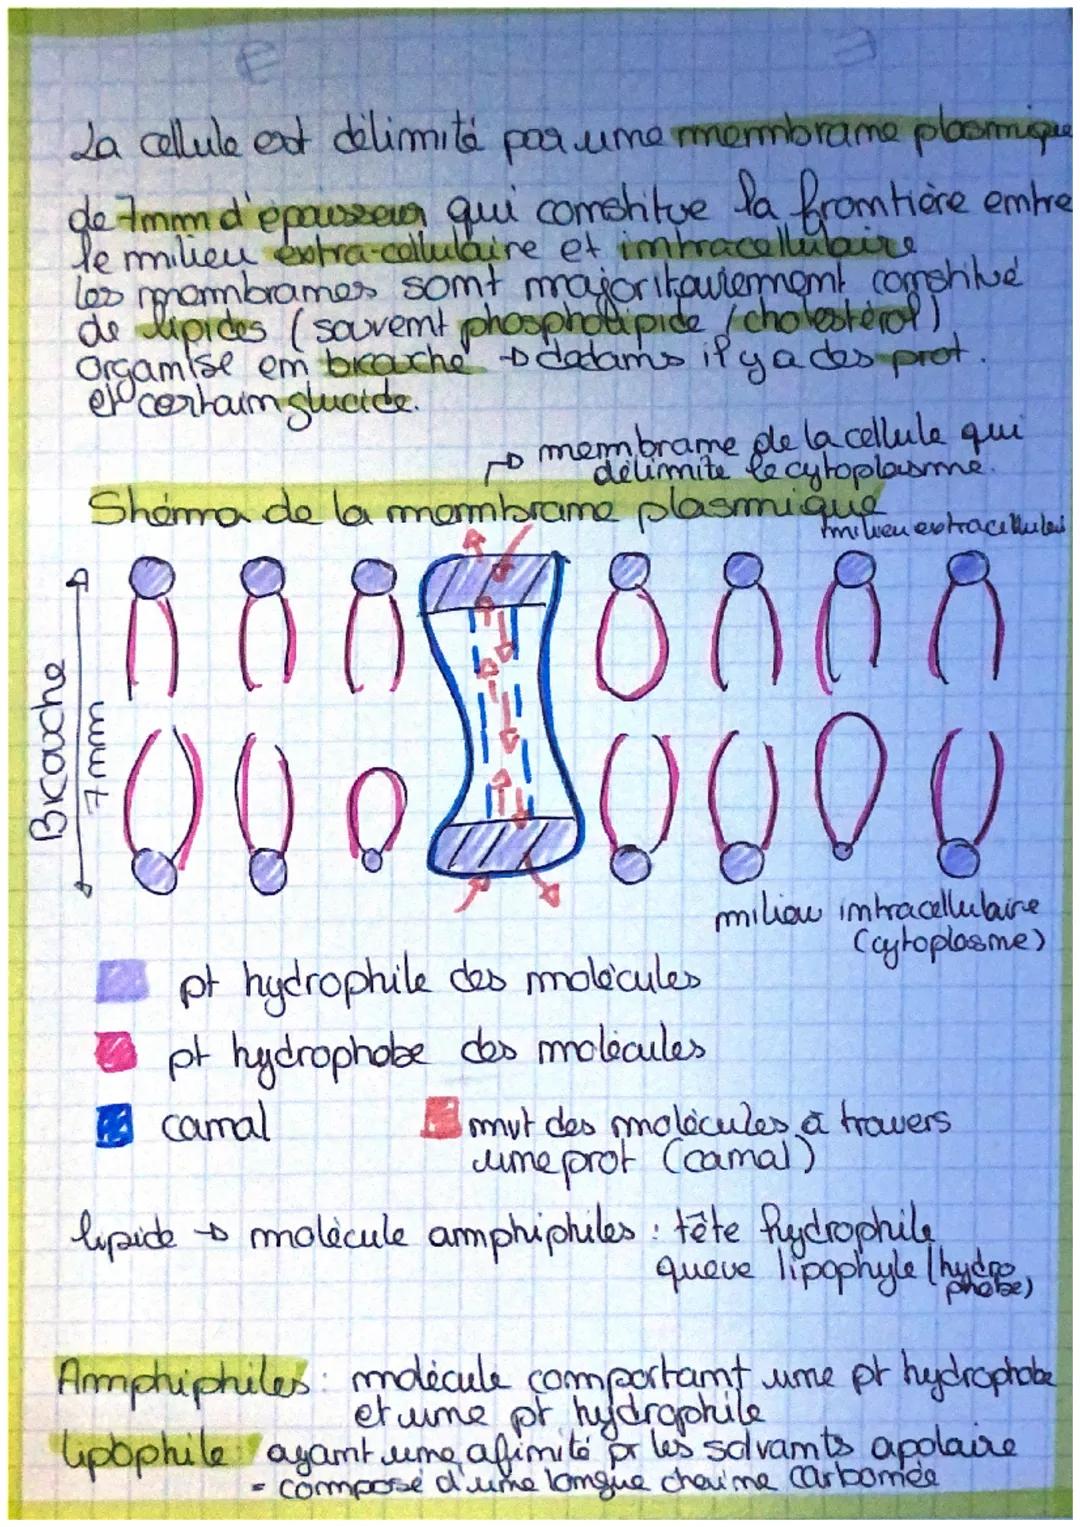 La cellule est délimité par une membrane plasmique
de 7nm d'épaisseur qui constitue la frontière entre
le milieu extra-cellulaire et intracellulaire
les membranes sont majoritairement constitué
de lipides (souvent phospholipide / cholestérol)
organise en bicouche → dedans il y a des prot.
et certain glucide.
→ membrane de la cellule qui
délimite le cytoplasme.
Shéma de la membrane plasmique
milieu extracellulai
Bicouche
7 nm
milieu intracellulaire
(cytoplasme)
pt hydrophile des molécules
pt hydrophobe des molécules
canal
mvt des molécules à travers
une prot (canal)
lipide → molécule amphiphiles : tête hydrophile
queue lipophyle (hydro
phobe)
Amphiphiles : molécule comportant une pt hydrophobe
et une pt hydrophile
lipophile : ayant une afinité pr les solvants apolaire
= composé d'une longue chaine carbonée